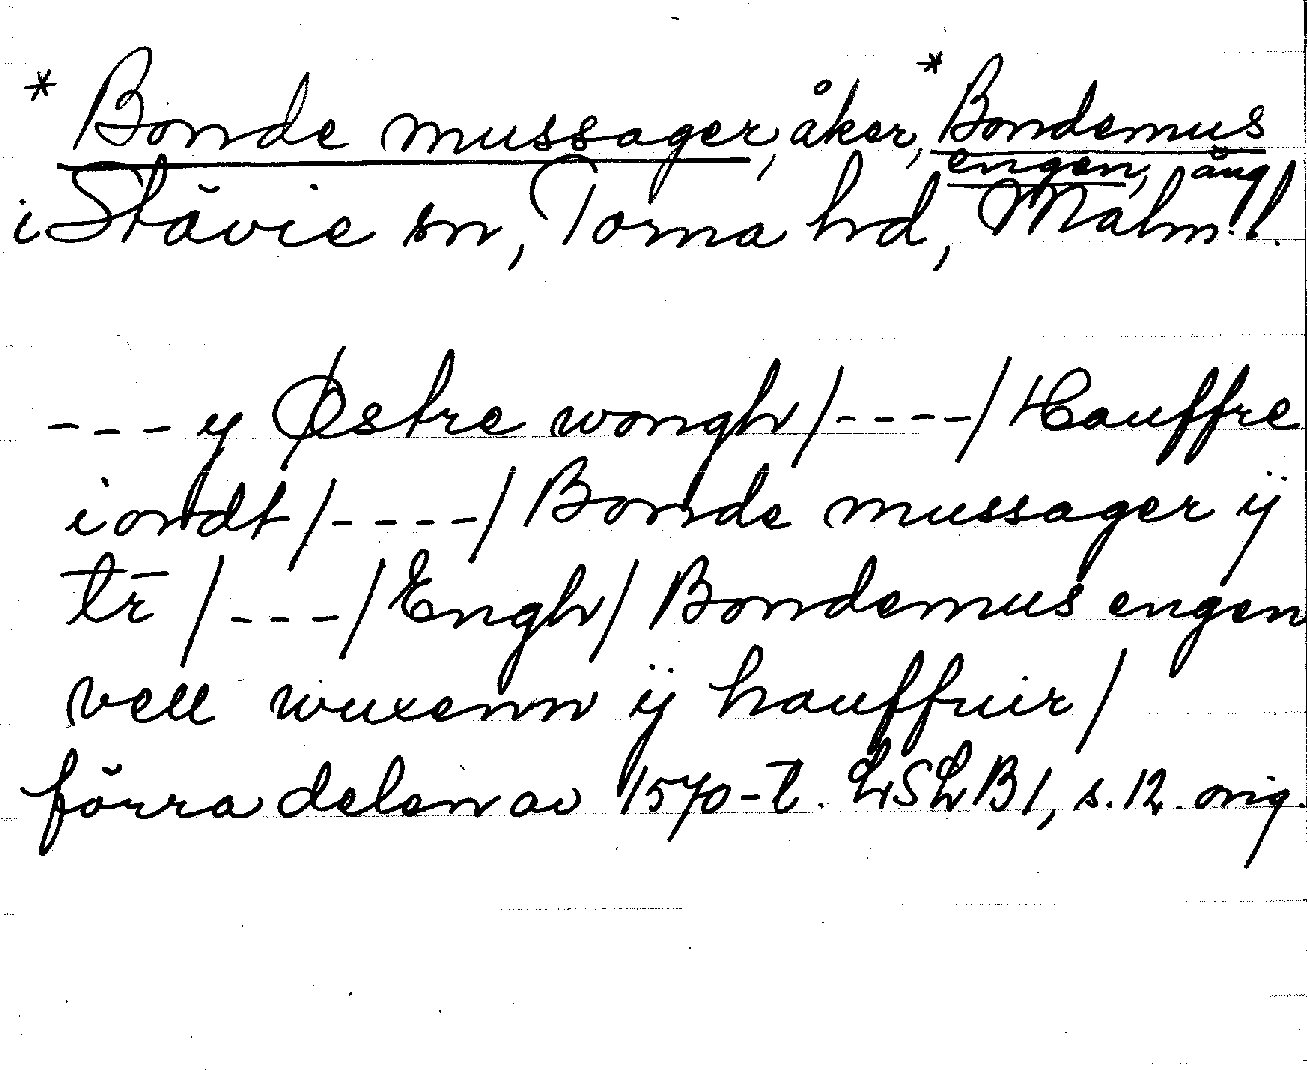 * Bonde mussager, åker, * Bondemus
engen, äng
i Stävie sn, Torna hd, Malm. l.
--- y Østre wongh/----/Hauffre
iordt/----/Bonde mussager ij
tr̄/---/Engh/Bondemus engen
vell wuxenn ij hauffuir/
förra delen av 1570-t. LSLB1, s.12. orig.